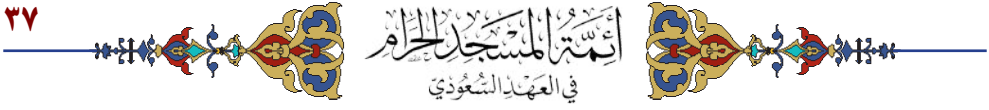 ٣٧
أَئِمَّةُ الْمَسْجِدِ الْحَرَامِ
فِي العَهْدِ السُّعُودِيِّ